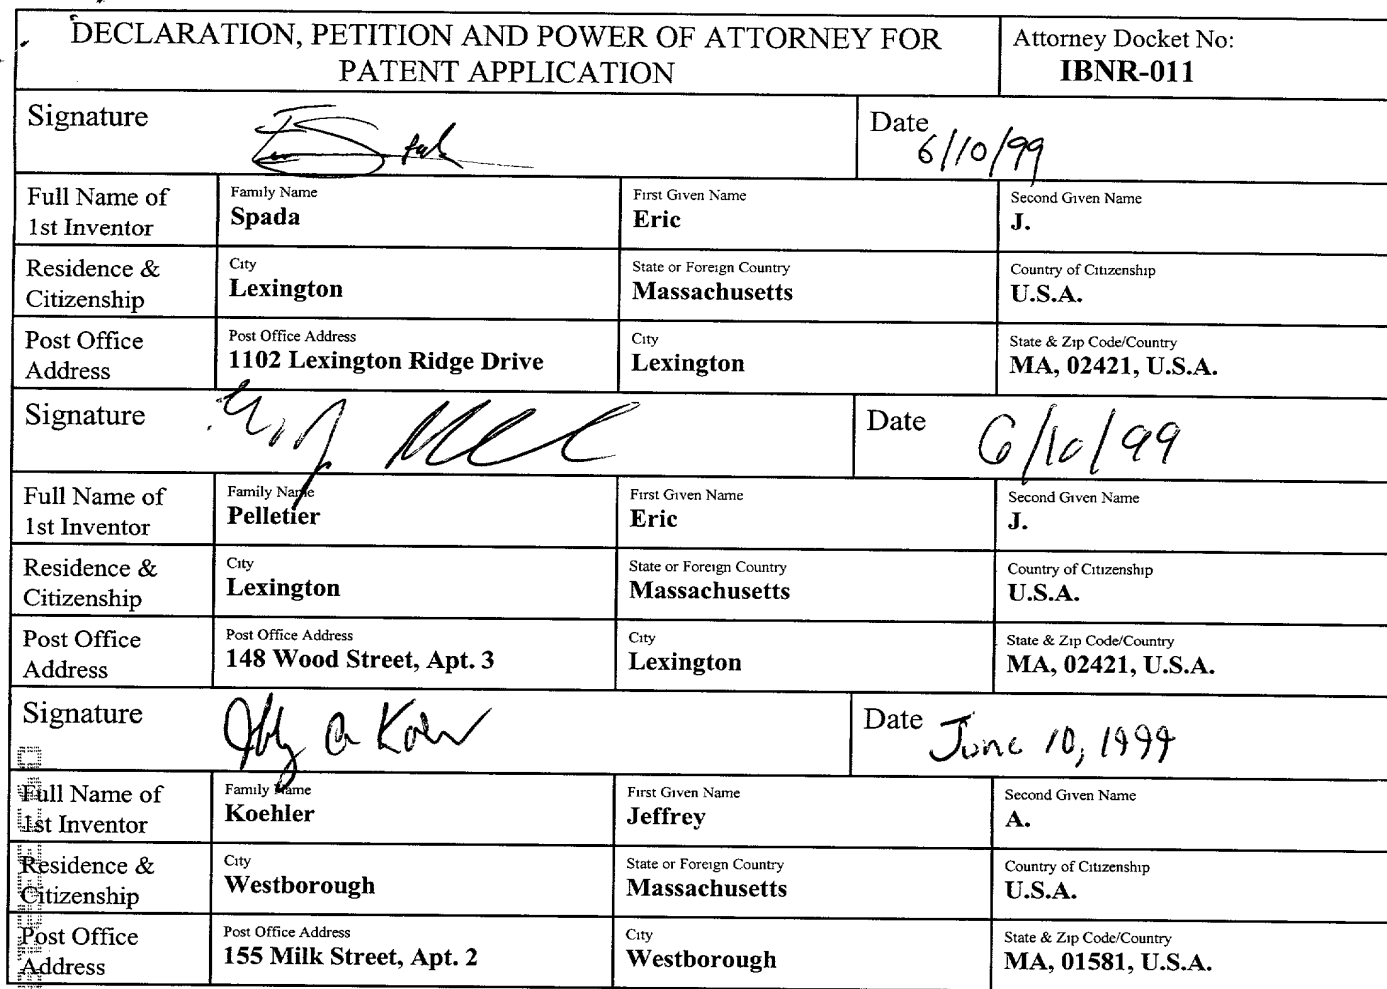 DECLARATION, PETITION AND POWER OF ATTORNEY FOR
PATENT APPLICATION
Attorney Docket No:
IBNR-011
Signature
Date
6/10/99
Full Name of
1st Inventor
Family Name
Spada
First Given Name
Eric
Second Given Name
J.
Residence &
Citizenship
City
Lexington
State or Foreign Country
Massachusetts
Country of Citizenship
U.S.A.
Post Office
Address
Post Office Address
1102 Lexington Ridge Drive
City
Lexington
State & Zip Code/Country
MA, 02421, U.S.A.
Signature
Date
6/10/99
Full Name of
1st Inventor
Family Name
Pelletier
First Given Name
Eric
Second Given Name
J.
Residence &
Citizenship
City
Lexington
State or Foreign Country
Massachusetts
Country of Citizenship
U.S.A.
Post Office
Address
Post Office Address
148 Wood Street, Apt. 3
City
Lexington
State & Zip Code/Country
MA, 02421, U.S.A.
Signature
Date
June 10, 1999
Full Name of
1st Inventor
Family Name
Koehler
First Given Name
Jeffrey
Second Given Name
A.
Residence &
Citizenship
City
Westborough
State or Foreign Country
Massachusetts
Country of Citizenship
U.S.A.
Post Office
Address
Post Office Address
155 Milk Street, Apt. 2
City
Westborough
State & Zip Code/Country
MA, 01581, U.S.A.